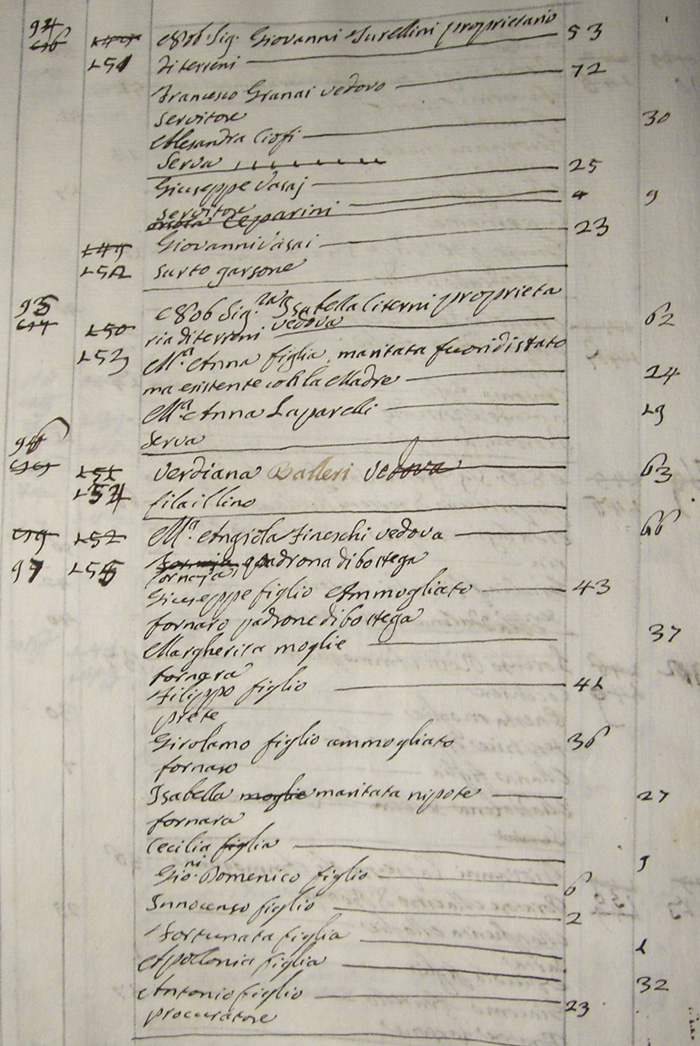 94 Nob. Sig. Giovanni proprietario 53
151 di terreni
Francesco Granai vedovo 72
servitore
Alesandra Ciofi 30
Serva
Giuseppe Vasaj 25
servitore
Ceparini 4 9
149 Giovanni Vasai 23
152 sarto garsone
95 Nob. Sig.ra Isabella Citerni proprieta
150 ria di terreni vedova 62
153 M.a Anna figlia maritata fuori di stato
ma esistente colla Madre 24
M.a Anna Laparelli 19
96 Serva
151 Verdiana Balleri vedova 63
154 fila il lino
152 M.a Angiola Fineschi vedova 66
97 155 fornaja padrona di bottega
Giuseppe figlio Ammogliato 43
fornaro padrone di bottega
Margherita moglie 37
fornara
Filippo figlio 41
prete
Girolamo figlio ammogliato 36
fornaro
Isabella moglie maritata nipote 27
fornara
Cecilia figlia
Gio.ni Domenico figlio 6
Innocenso figlio 2
Fortunata figlia 1
Apollonia figlia 32
Antonio figlio 23
procuratore